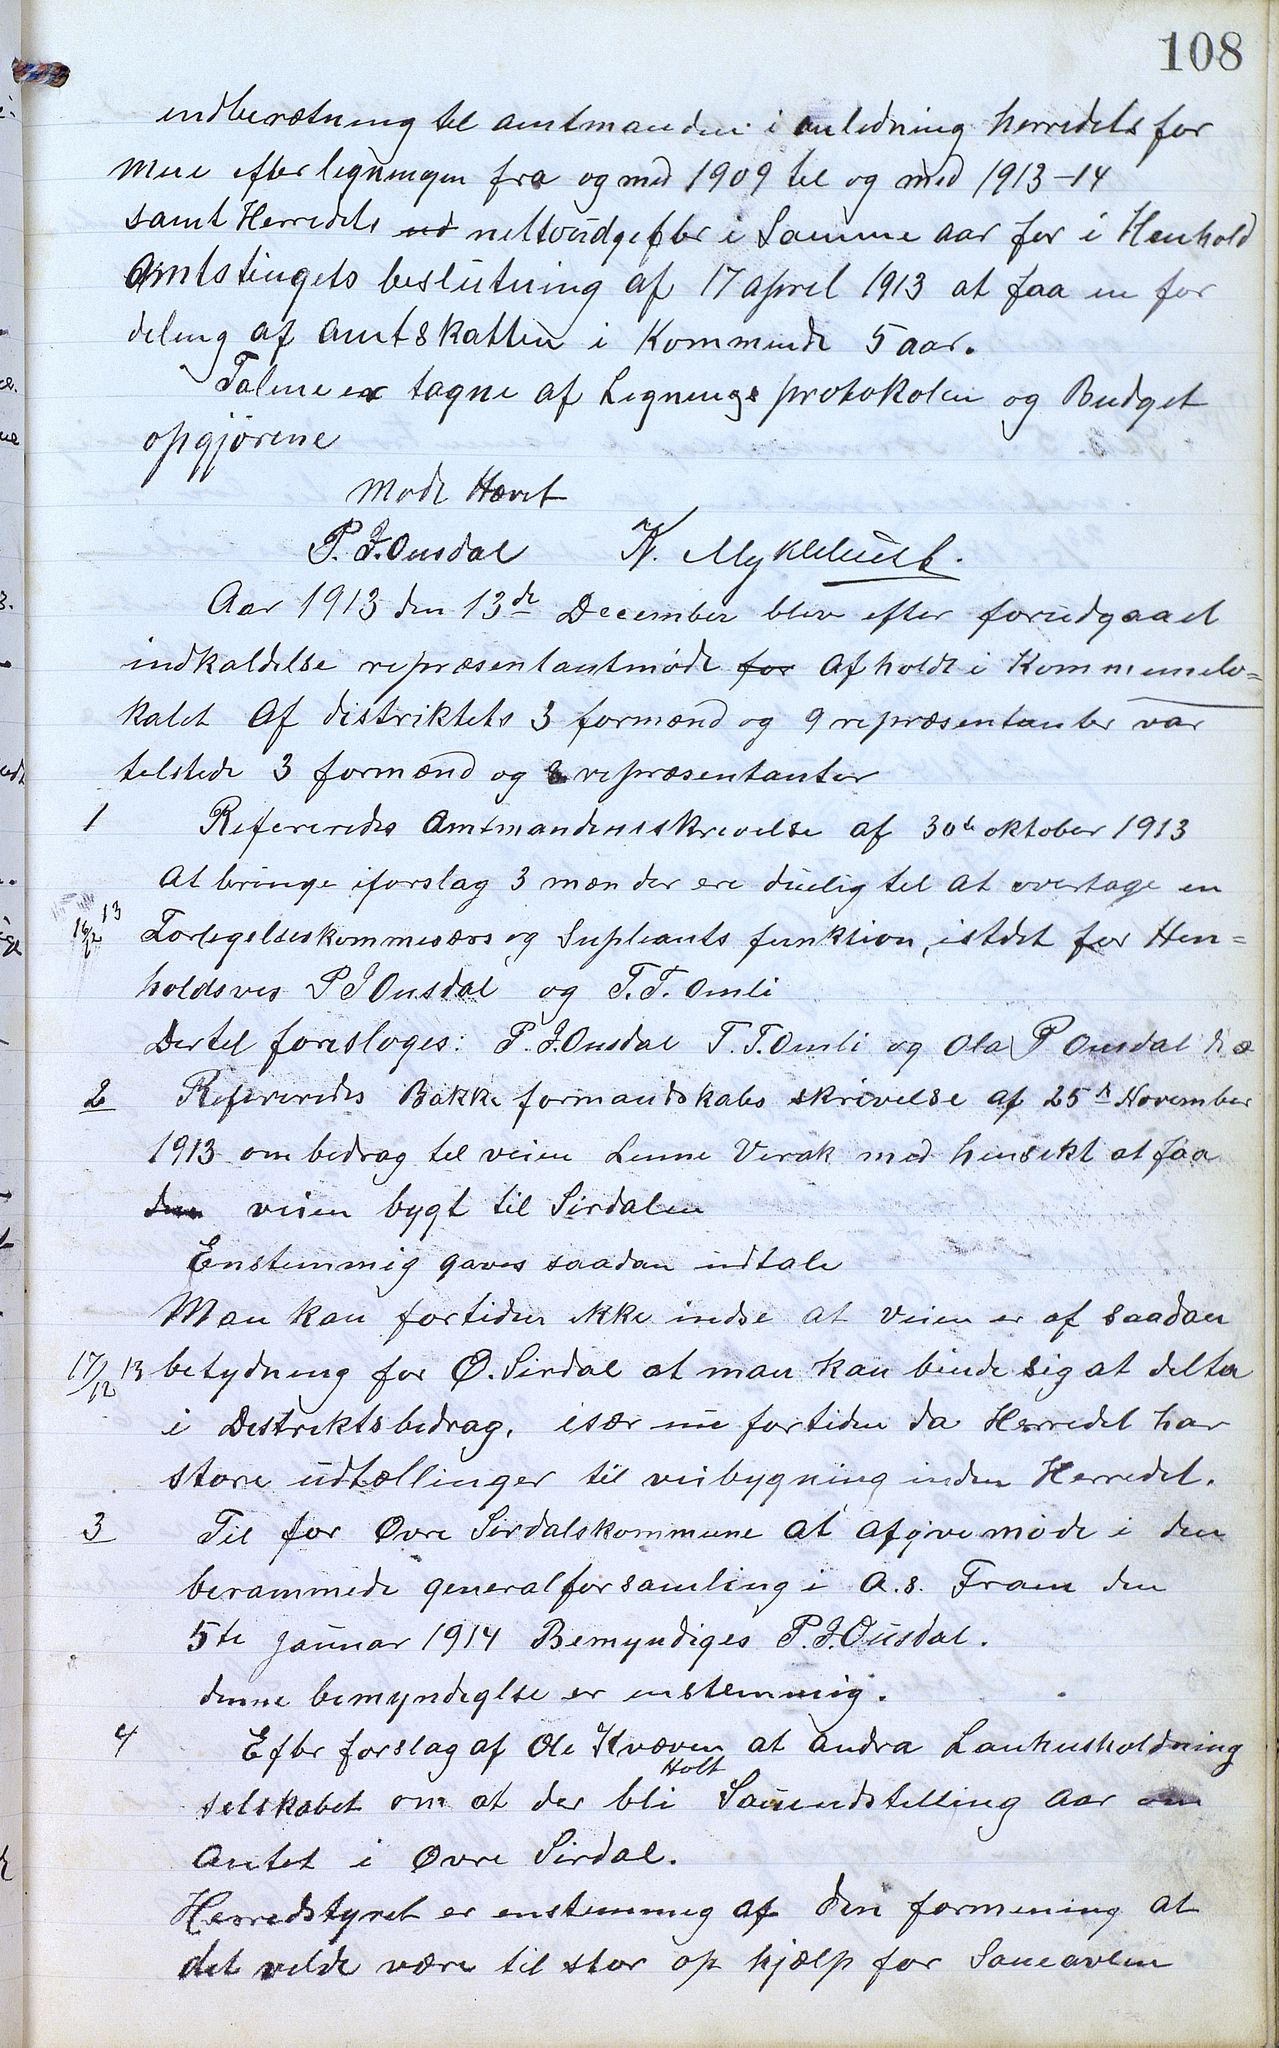 108
indberætning til amtmanden i anledning herredets for
mue efter ligningen fra og med 1909 til og med 1913-14
samt Herredets ud nettoudgifter i Samme aar for i Henhold
Amtstingets beslutning af 17 april 1913 at faa en for
deling af amtskatten i Kommende 5 aar.
Talene er tagne af Lignings protokolen og Budget
opgjørene
Møde Hævet
P. J. Ousdal K. Myklebust.
Aar 1913 den 13de December blev efter forudgaaet
indkaldelse repræsentantmøde for afholdt i Kommunelo=
kalet Af distriktets 3 formænd og 9 repræsentanter var
tilstede 3 formænd og 8 repræsentanter
1 Refereredes Amtmandensskrivelse af 30te oktober 1913
At bringe iforslag 3 mæn der ere duelig til at overtage en
16/12 13 Forligelseskommisærs og Supleants funktion, istdet for Hen=
holdsves P J Ousdal og T. T. Omli
Dertil foresloges: P. J. Ousdal T. T. Omli og Ola P Ousdal
2 Refereredes Bakke formandskabs skrivelse af 25de November
1913 om bedrag til veien Lunne Virak med hensikt at faa
den veien bygt til Sirdalen
Enstemmig gaves saadan udtale
Man kan fortiden ikke indse at veien er af saadan
17/12 13 betydning for Ø. Sirdal at man kan binde sig at delta
i Destriktsbedrag, især nu fortiden da Herredet har
store udtællinger til veibygning inden Herredet.
3 Til for Øvre Sirdalskommune at afgive møde i den
berammede generalforsamling i A.s. Fram den
5te januar 1914 Bemyndiges P. J. Ousdal.
denne bemyndiglse er enstemmig.
4 Efter forslag af Ole Kvæven at andra Lanhusholdning
selskabet om at der bli Holt Saueudstilling Aar om
Antet i Øvre Sirdal.
Herredstyret er enstemmig af den formening at
det vilde være til stor op hjælp for Saueavlen